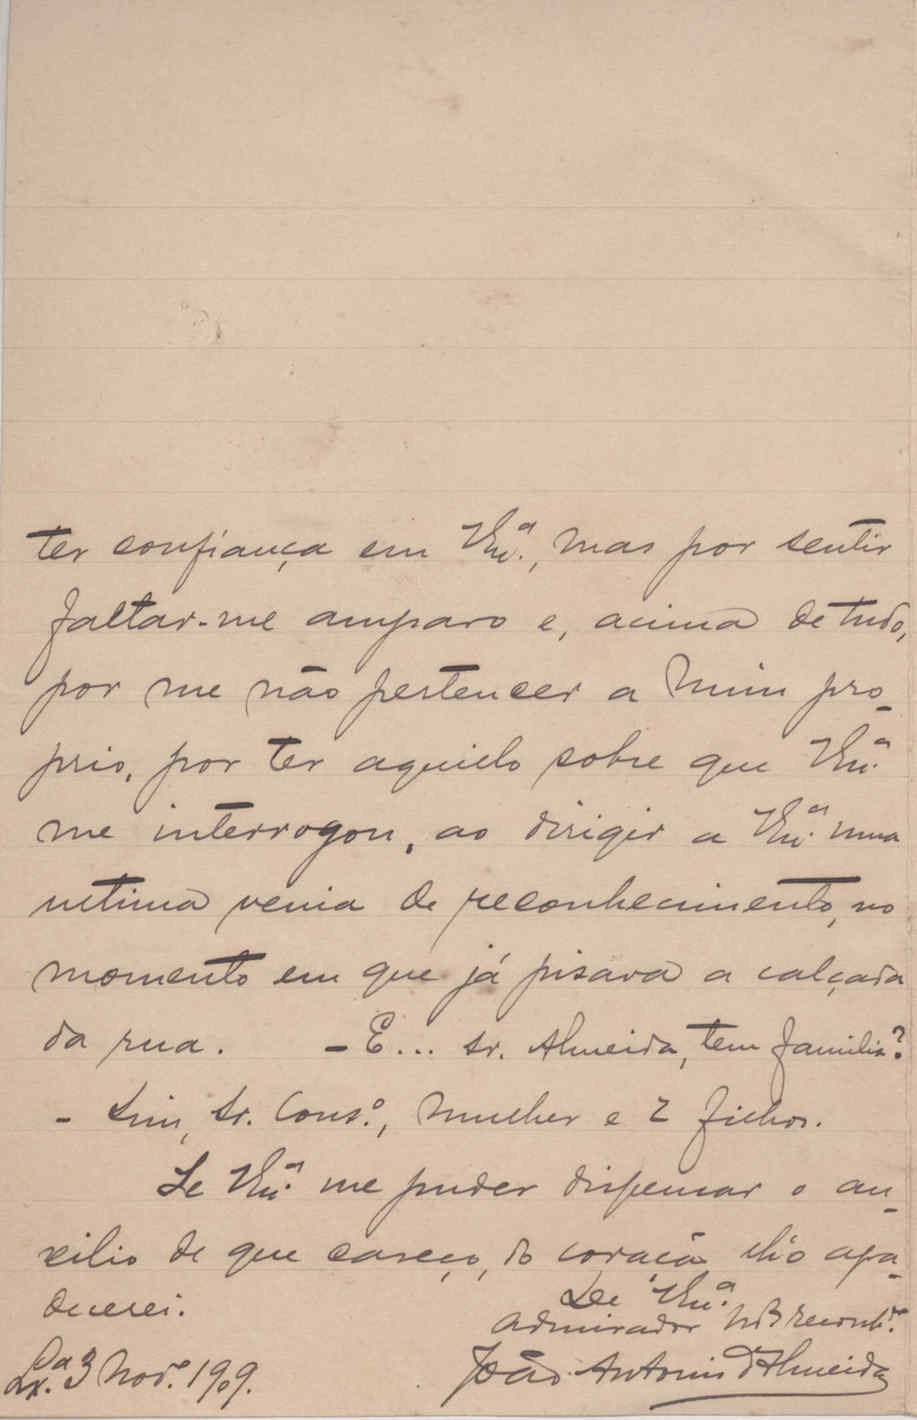 ter confiança em V.Ex.ª, mas por sentir
faltar-me amparo e, acima de tudo,
por me não pertencer a mim pro-
prio, por ter aquielo sobre que V.Ex.ª
me interrogou, ao dirigir a V.Ex.ª uma
ultima venia de reconhecimento, no
momento em que já pisava a calçada
da rua. – E... sr. Almeida, tem familia?
– Sim, Sr. Cons.º, mulher e 2 filhos.
Se V.Ex.ª me puder dispensar o au-
xilio de que careço, do coração lh'o agra-
decerei.
De V.Ex.ª
admirador
Lx.ª 3 Nov.º 1909.
João Antonio d'Almeida